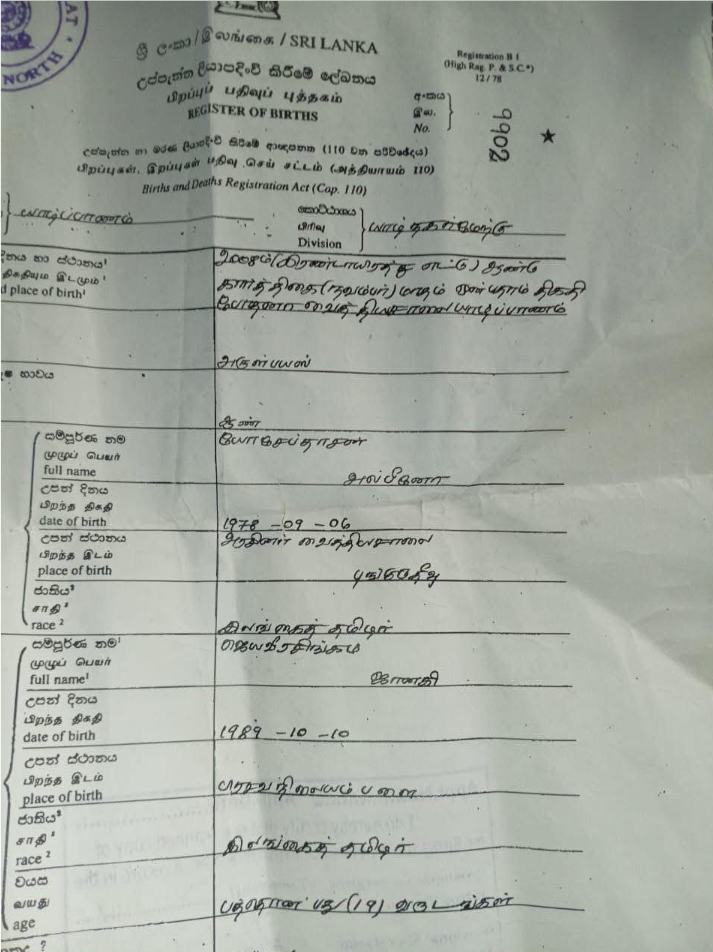 NORTH
ශ්‍රී ලංකා / இலங்கை / SRI LANKA
Registration B 1
(High Rag. P. & S.C.*)
12 / 78
උප්පැන්න ලියාපදිංචි කිරීමේ ලේඛනය
பிறப்புப் பதிவுப் புத்தகம்
REGISTER OF BIRTHS
අංකය
இல.
No.
9902
උප්පැන්න හා මරණ ලියාපදිංචි කිරීමේ ආඥාපනත (110 වන පරිච්ඡේදය)
பிறப்புகள், இறப்புகள் பதிவு செய் சட்டம் (அத்தியாயம் 110)
Births and Deaths Registration Act (Cap. 110)
யாழ்ப்பாணம்
කොට්ඨාශය
பிரிவு
Division
யாழ் நகர் மேற்கு
දිනය හා ස්ථානය¹
திகதியும் இடமும்¹
d place of birth¹
2008ம் (இரண்டாயிரத்து எட்டு) ஆண்டு
கார்த்திகை (நவம்பர்) மாதம் திகதி
போதனா வைத்தியசாலை யாழ்ப்பாணம்
භාවය
அருள்பயஸ்
ஆண்
සම්පූර්ණ නම
முழுப் பெயர்
full name
யோசேப்தாசன்
அல்பீனோ
උපන් දිනය
பிறந்த திகதி
date of birth
1978 -09 -06
උපන් ස්ථානය
பிறந்த இடம்
place of birth
வைத்தியசாலை
புங்குடுதீவு
ජාතිය²
சாதி²
race ²
இலங்கைத் தமிழர்
සම්පූර්ණ නම¹
முழுப் பெயர்
full name¹
ஜெயவீரசிங்கம்
ஜானகி
උපන් දිනය
பிறந்த திகதி
date of birth
1989 -10 -10
උපන් ස්ථානය
பிறந்த இடம்
place of birth
பிரசவநிலையம் பளை
ජාතිය²
சாதி²
race ²
இலங்கைத் தமிழர்
වයස
வயது
age
பத்தொன்பது (19) வருடங்கள்